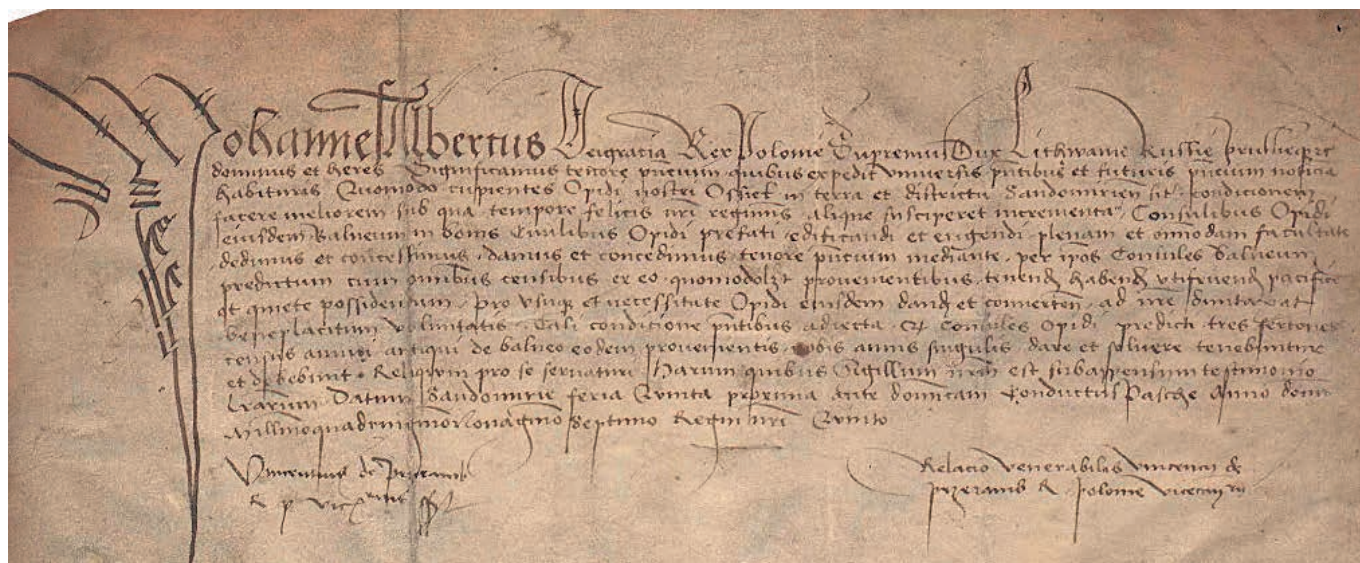 Johannes Albertus Dei gracia Rex Polonie Supremus Dux Lithwanie Russie prussieqꝫ ꝛc
dominus et heres Significamus tenore pn̄cium quibus expedit universis pn̄tibus et futuris pn̄cium noticiā
habituris Quomodo cupientes Opidi nostri Ossiek in terra et districtu Sandomirien̄ siti condicionem
facere meliorem sub qua tempore felicis nr̄i regiminis aliqua susciperet incrementa Consulibus Opidi
eiusdem Balneum in bonis Civilibus Opidi prefati edificandi et erigendi plenam et omīodam facultatē
dedimus et concessimus damus et concedimus tenore pn̄cium mediante per ip̄os Consules Balneum
predictum cum om̄ibus censibus ex eo quomodolꝫt provenientibus tenend̄ habend̄ vtifruend̄ pacifice
et quiete possidendum pro vsuqꝫ et necessitate Opidi eiusdem dand̄ et convertend̄ ad nr̄e dumtaxat
beneplacitum voluntatis Tali condicione pn̄tibus adiecta Consules Opidi predicti tres fertones
census annui antiqui de balneo eodem provenientis nobis annis singulis dare et solvere tenebuntur
et debebunt Reliquum pro se servaturi Harum quibus Sigillum nr̄m est subappensum testimonio
lr̄arum Datum Sandomirie feria Qvinta proxima ante dominicam Conductus Pasche Anno domī
Millimoquadringmōnonagmō septimo Regni nr̄i Qvinto
Vincencius de Przeramb
R p vicecan
Relacio venerabilis vincencij de
przeramb R polonie vicecan